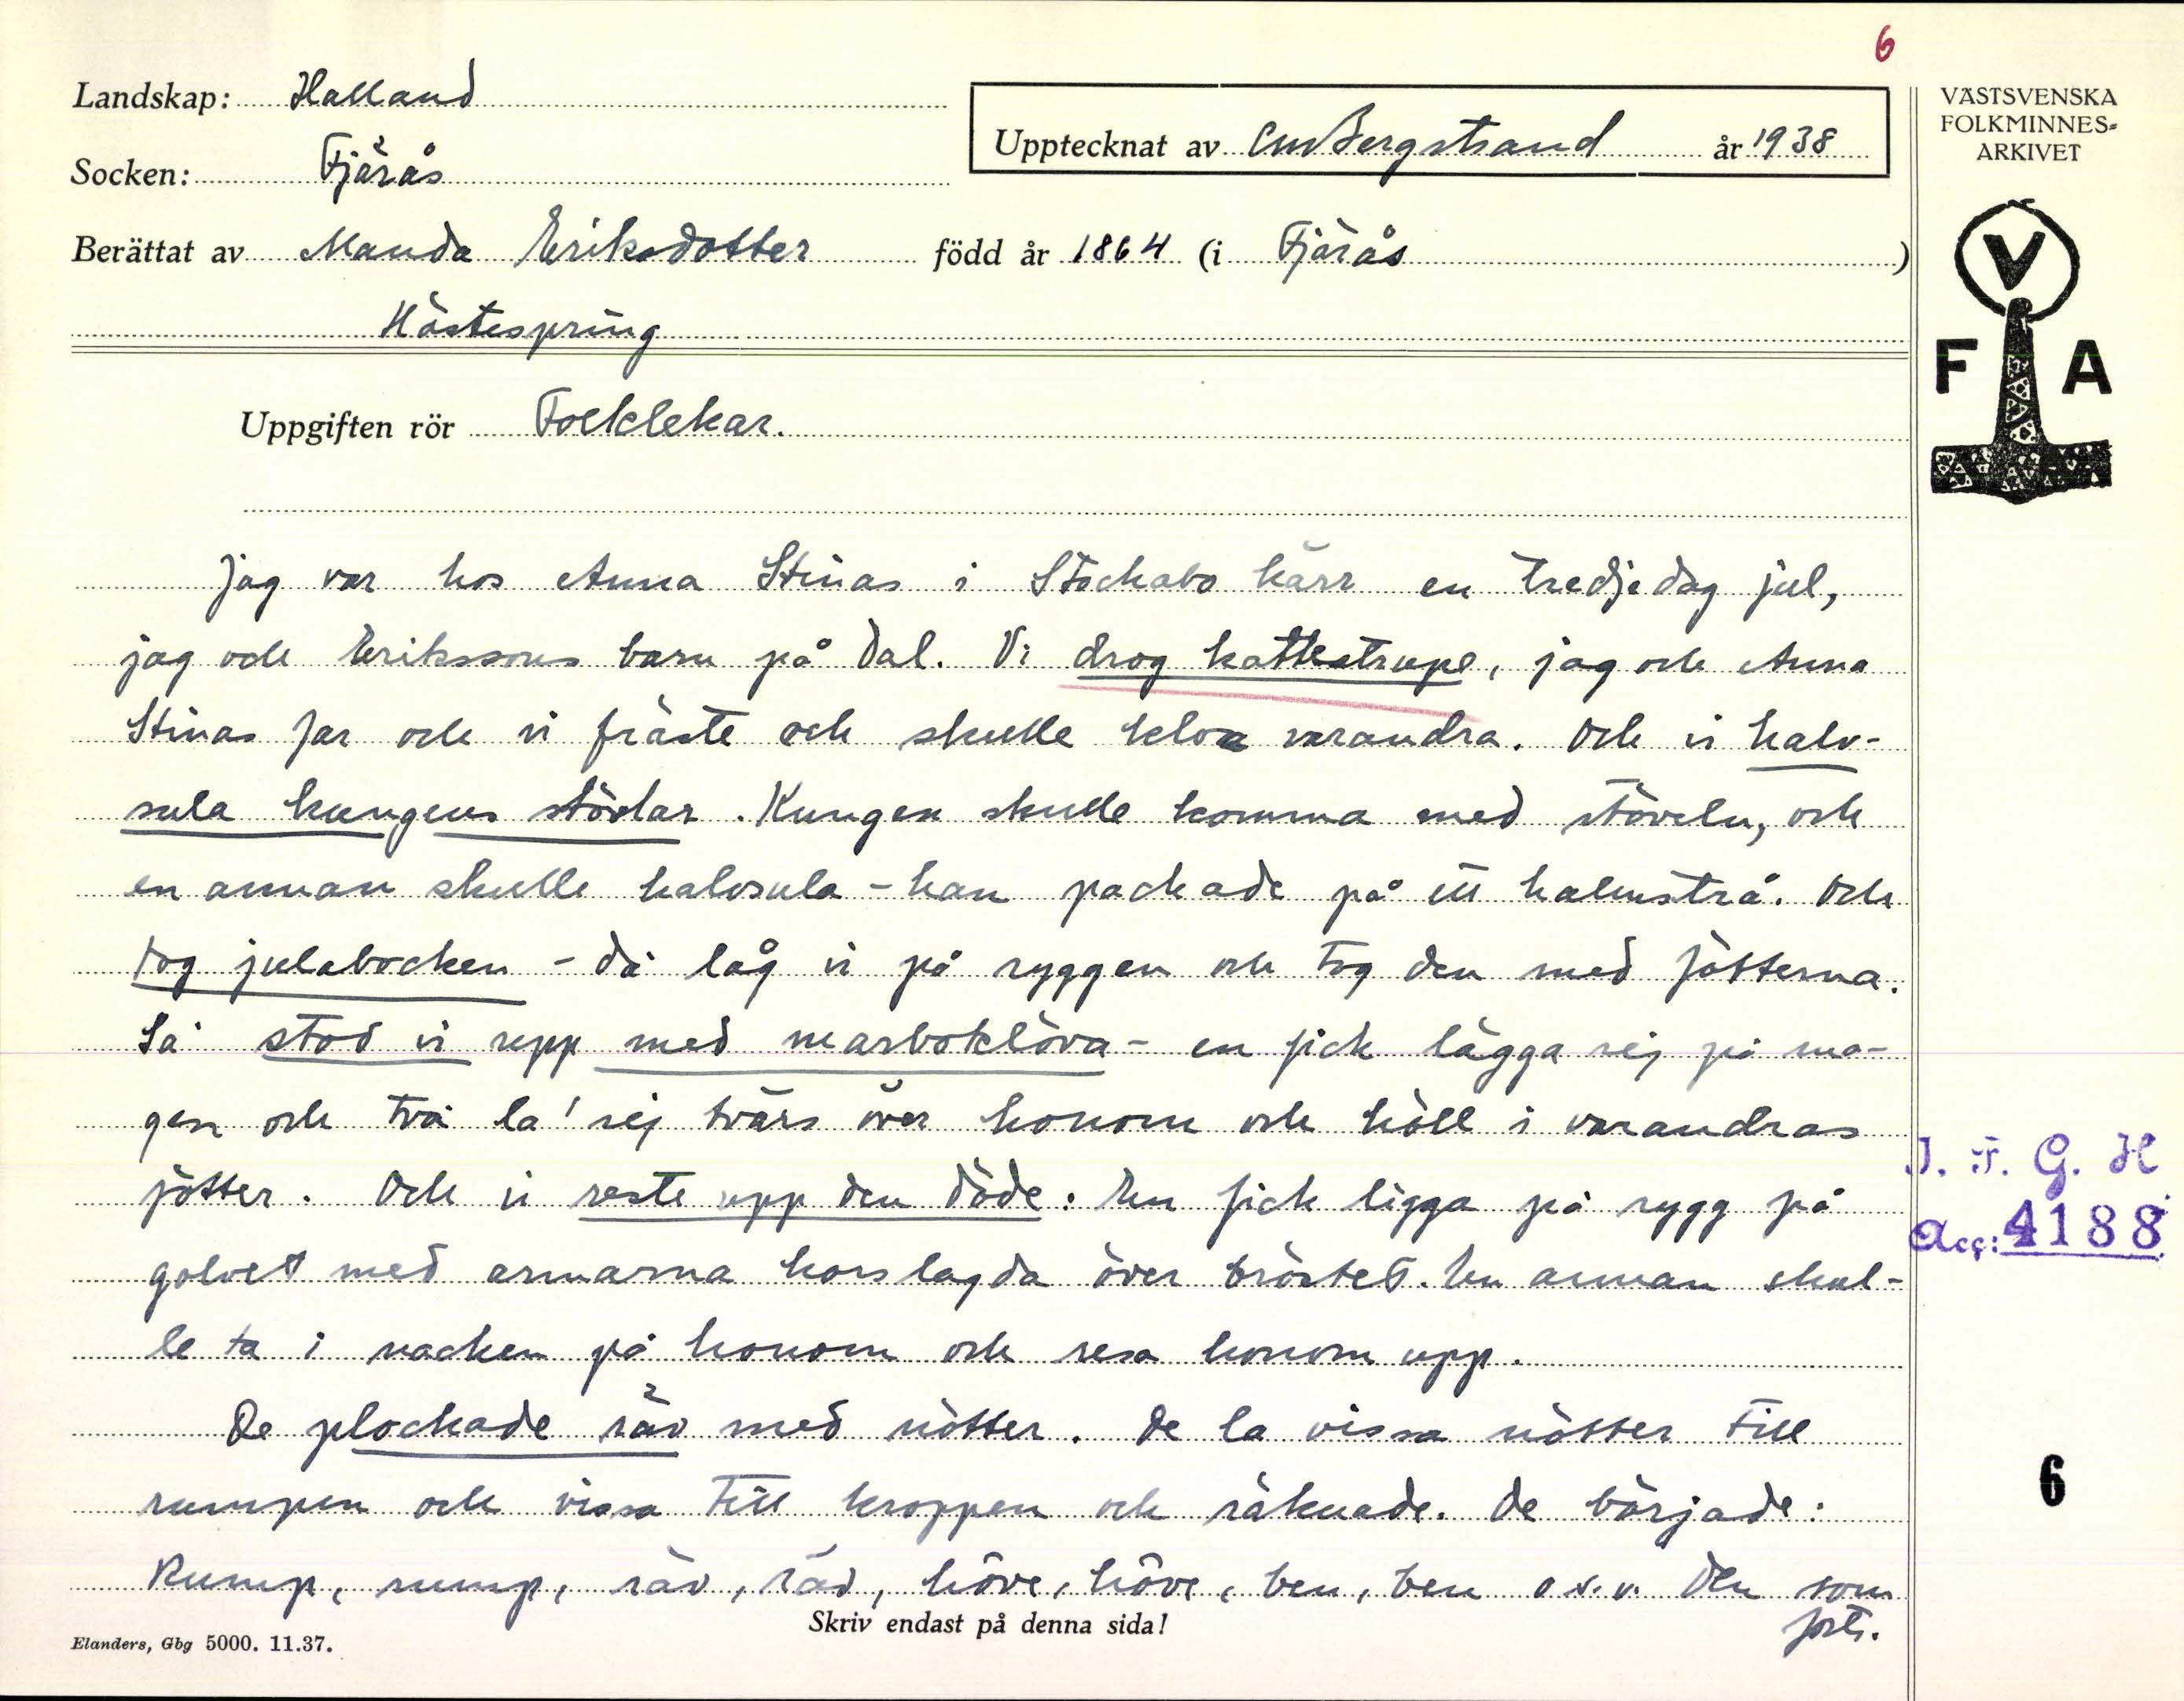 6
Landskap: Halland
Upptecknat av CMBergstrand år 1938
VÄSTSVENSKA
FOLKMINNES=
ARKIVET
Socken: Fjärås
Berättat av Manda Eriksdotter född år 1864 (i Fjärås)
Hästespring
V
F A
Uppgiften rör Folklekar.
Jag var hos Anna Stinas i Stockabo kärr en tredjedag jul,
jag och Erikssons barn på Dal. Vi drog kattestrupe, jag och Anna
Stinas far och vi fräste och skulle klöa varandra. Och vi halv-
sula kungens stövlar. Kungen skulle komma med stöveln, och
en annan skulle halvsula - han packade på ett halmstrå. Och
tog julabocken - då låg vi på ryggen och tog den med fötterna.
Så stod vi upp med marboklöva - en fick lägga sej på ma-
gen och två la' sej tvärs över honom och höll i varandras
fötter. Och vi reste upp den döde: En fick ligga på rygg på
golvet med armarna korslagda över bröstet. En annan skul-
le ta i nacken på honom och resa honom upp.
De plockade räv med nötter. De la vissa nötter till
rumpen och vissa till kroppen och räknade. De började:
Rump, rump, räv, räv, höve, höve, ben, ben o.s.v. Den som
forts.
I. F. G. H.
Acc: 4188
6
Skriv endast på denna sida!
Elanders, Gbg 5000. 11.37.